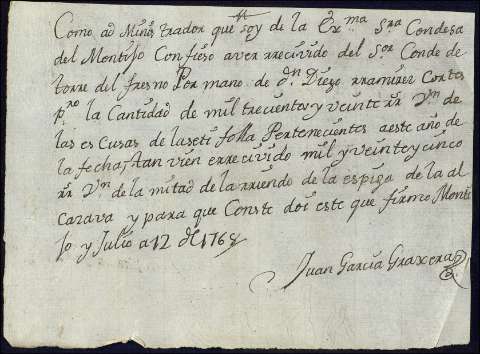 Como ad Minis trador que soy de la Exma Sra Condesa
del Montijo Confieso aver rrecivido del Sor Conde de
torre del fresno Por mano de Dn Diego rramirez Cortes
pro la Cantidad de mil trecientos y veinte rr Vn de
las es Cusas de la seti folla Pertenecientes a este año de
la fecha, tan vien errecivido mil y veinte y cinco
rr Vn de la mitad de la rriendo de la espiga de la al
Carava y para que Conste doi este que firmo Monti
jo y Julio a 12 de 1768
Juan Garcia Graxera